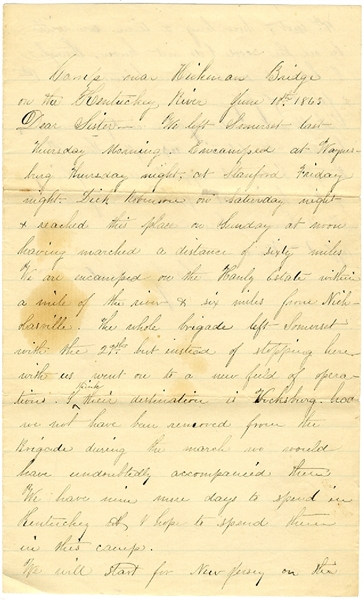 Camp near Hickman Bridge
on the Kentucky River June 10th 1863
Dear Sister— We left Somerset last
Thursday Morning. Encamped at Waynes-
burg Thursday night. at Stanford Friday
night. Dick Robinson on Saturday night
& reached this place on Sunday at noon
having marched a distance of sixty miles
We are encamped on the Estate within
a mile of the river & six miles from Nich-
lasville. The whole brigade left Somerset
with the 27th but instead of stopping here
with us went on to a new field of opera-
tion. I think their destination is Vicksburg. had
we not have ben removed from the
Brigade during the march we would
have undoubtedly accompanied them
We have nine more days to spend in
Kentucky & I hope to spend them
in this camp.
We will start for New Jersey on the